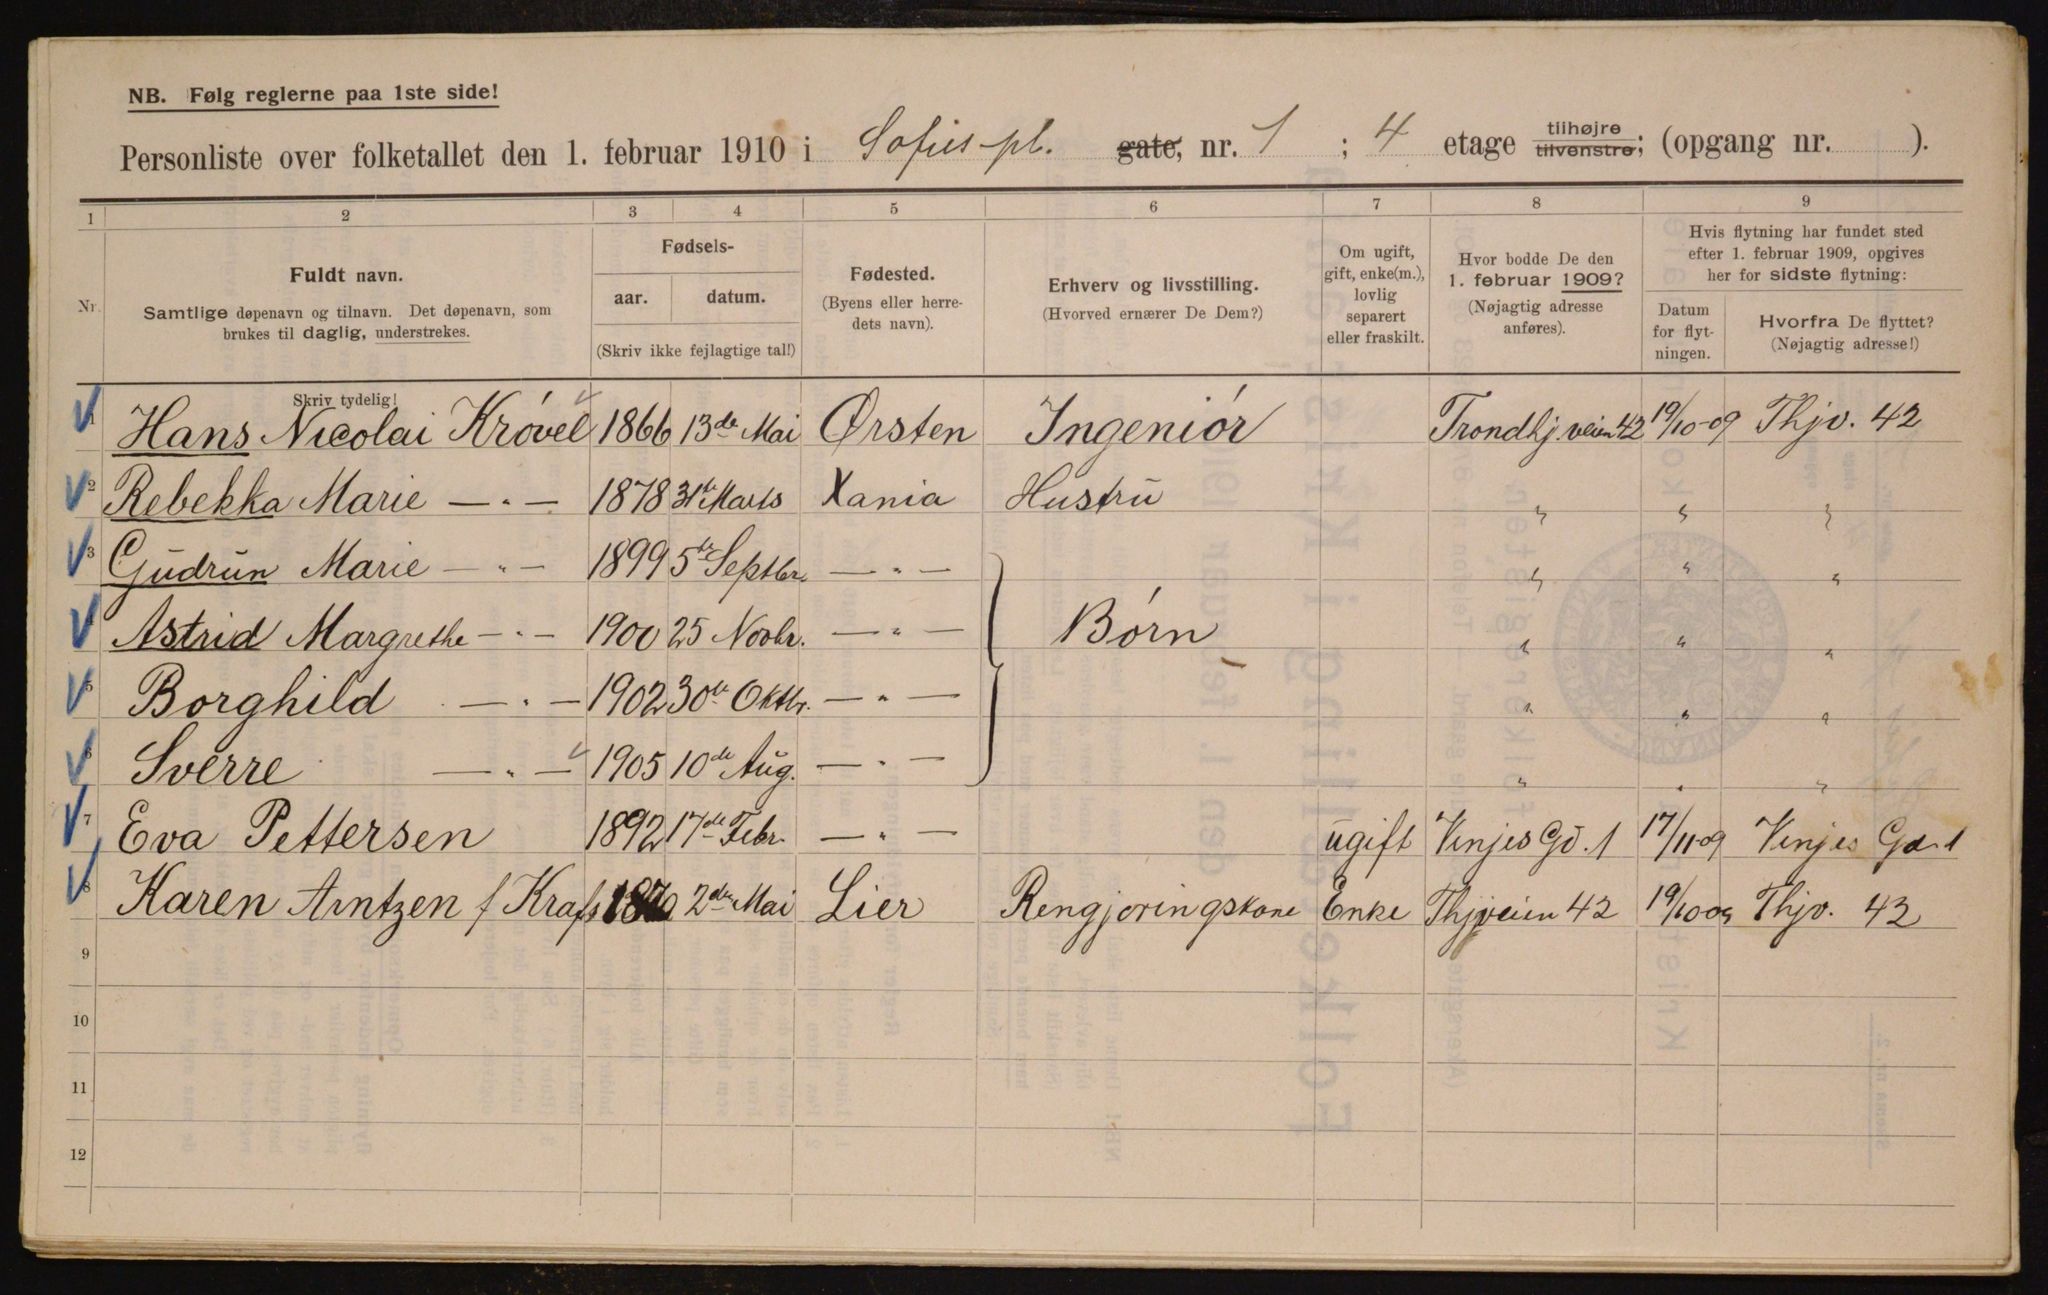 NB. Følg reglerne paa 1ste side!
Personliste over folketallet den 1. februar 1910 i Sofies pl. gate, nr. 1 ; 4 etage tilhøjre tilvenstre; (opgang nr. ).
1 2 3 4 5 6 7 8 9
Nr.
Fuldt navn.
Samtlige døpenavn og tilnavn. Det døpenavn, som
brukes til daglig, understrekes.
Skriv tydelig!
Fødsels-
aar. datum.
(Skriv ikke fejlagtige tal!)
Fødested.
(Byens eller herre-
dets navn).
Erhverv og livsstilling.
(Hvorved ernærer De Dem?)
Om ugift,
gift, enke(m.),
lovlig
separert
eller fraskilt.
Hvor bodde De den
1. februar 1909?
(Nøjagtig adresse
anføres).
Hvis flytning har fundet sted
efter 1. februar 1909, opgives
her for sidste flytning:
Datum
for flyt-
ningen.
Hvorfra De flyttet?
(Nøjagtig adresse!)
1 Hans Nicolai Krøvel 1866 13de Mai Ørsten Ingeniør Trondhj.veien 42 19/10-09 Thjv. 42
2 Rebekka Marie — " — 1878 31te Marts Xania Hustru " " "
3 Gudrun Marie — " — 1899 5te Septbr. — " — " " "
4 Astrid Margrethe — " — 1900 25 Novbr. — " — Børn " " "
5 Borghild — " — 1902 30te Oktbr. — " — " " "
6 Sverre — " — 1905 10de Aug. — " — " " "
7 Eva Pettersen 1892 17de Febr. — " — ugift Vinjes Gd. 1 17/11-09 Vinjes Gd. 1
8 Karen Arntzen f Kraft 1870 2den Mai Lier Rengjøringskone Enke Thjveien 42 19/10 09 Thjv. 42
9
10
11
12